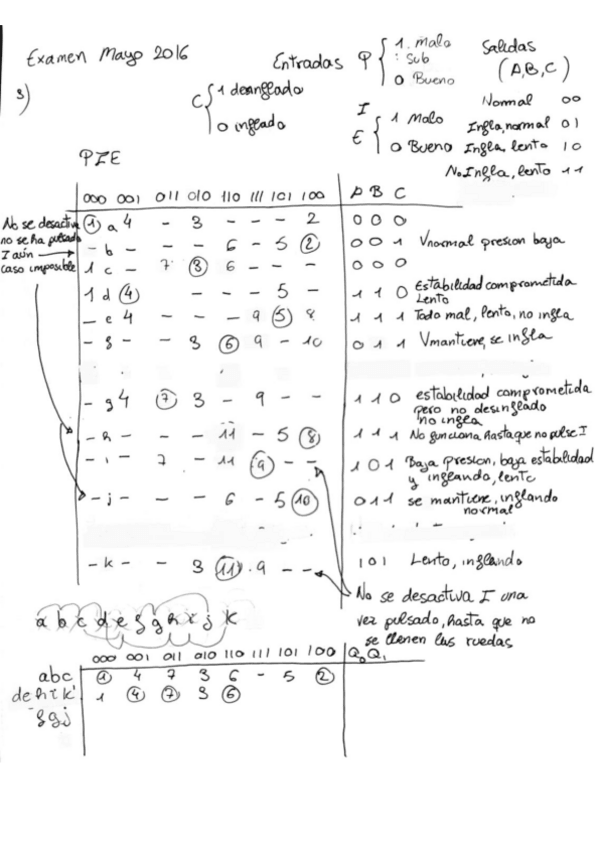 Examen Mayo 2016
Entradas P { 1 Malo
: Sub
0 Bueno
Salidas
(A,B,C)
3)
C { 1 desinflado
0 inflado
I
E { 1 Malo
0 Bueno
Normal 00
Infla, normal 01
Infla, lento 10
No Infla, lento 11
PZE
000 001 011 010 110 111 101 100 A B C
① a 4 - 3 - - - 2 0 0 0
- b - - - 6 - 5 ② 0 0 1 Vnormal presion baja
1 c - 7 ③ 6 - - - 0 0 0
1 d ④ - - - 5 - 1 1 0 Estabilidad comprometida Lento
- e 4 - - - 9 ⑤ 8 1 1 1 Todo mal, lento, no infla
- f - - 3 ⑥ 9 - 10 0 1 1 Vmantiene, se infla
- g 4 ⑦ 3 - 9 - - 1 1 0 estabilidad comprometida
pero no desinflado
no infla
- h - - - 11 - 5 ⑧ 1 1 1 No funciona hasta que no pulse I
- i - 7 - 11 ⑨ - - 1 0 1 Baja presion, baja estabilidad
y inflando, lento
- j - - - 6 - 5 ⑩ 0 1 1 se mantiene, inflando
normal
- k - - 3 ⑪ 9 - - 1 0 1 Lento, inflando
No se desactiva
no se ha pulsado
I aún
caso imposible
No se desactiva I una
vez pulsado, hasta que no
se llenen las ruedas
a b c d e f g h i j k
000 001 011 010 110 111 101 100 Q₀Q₁
abc ① 4 7 3 6 - 5 ②
dehik 1 ④ ⑦ 3 ⑥
fgj